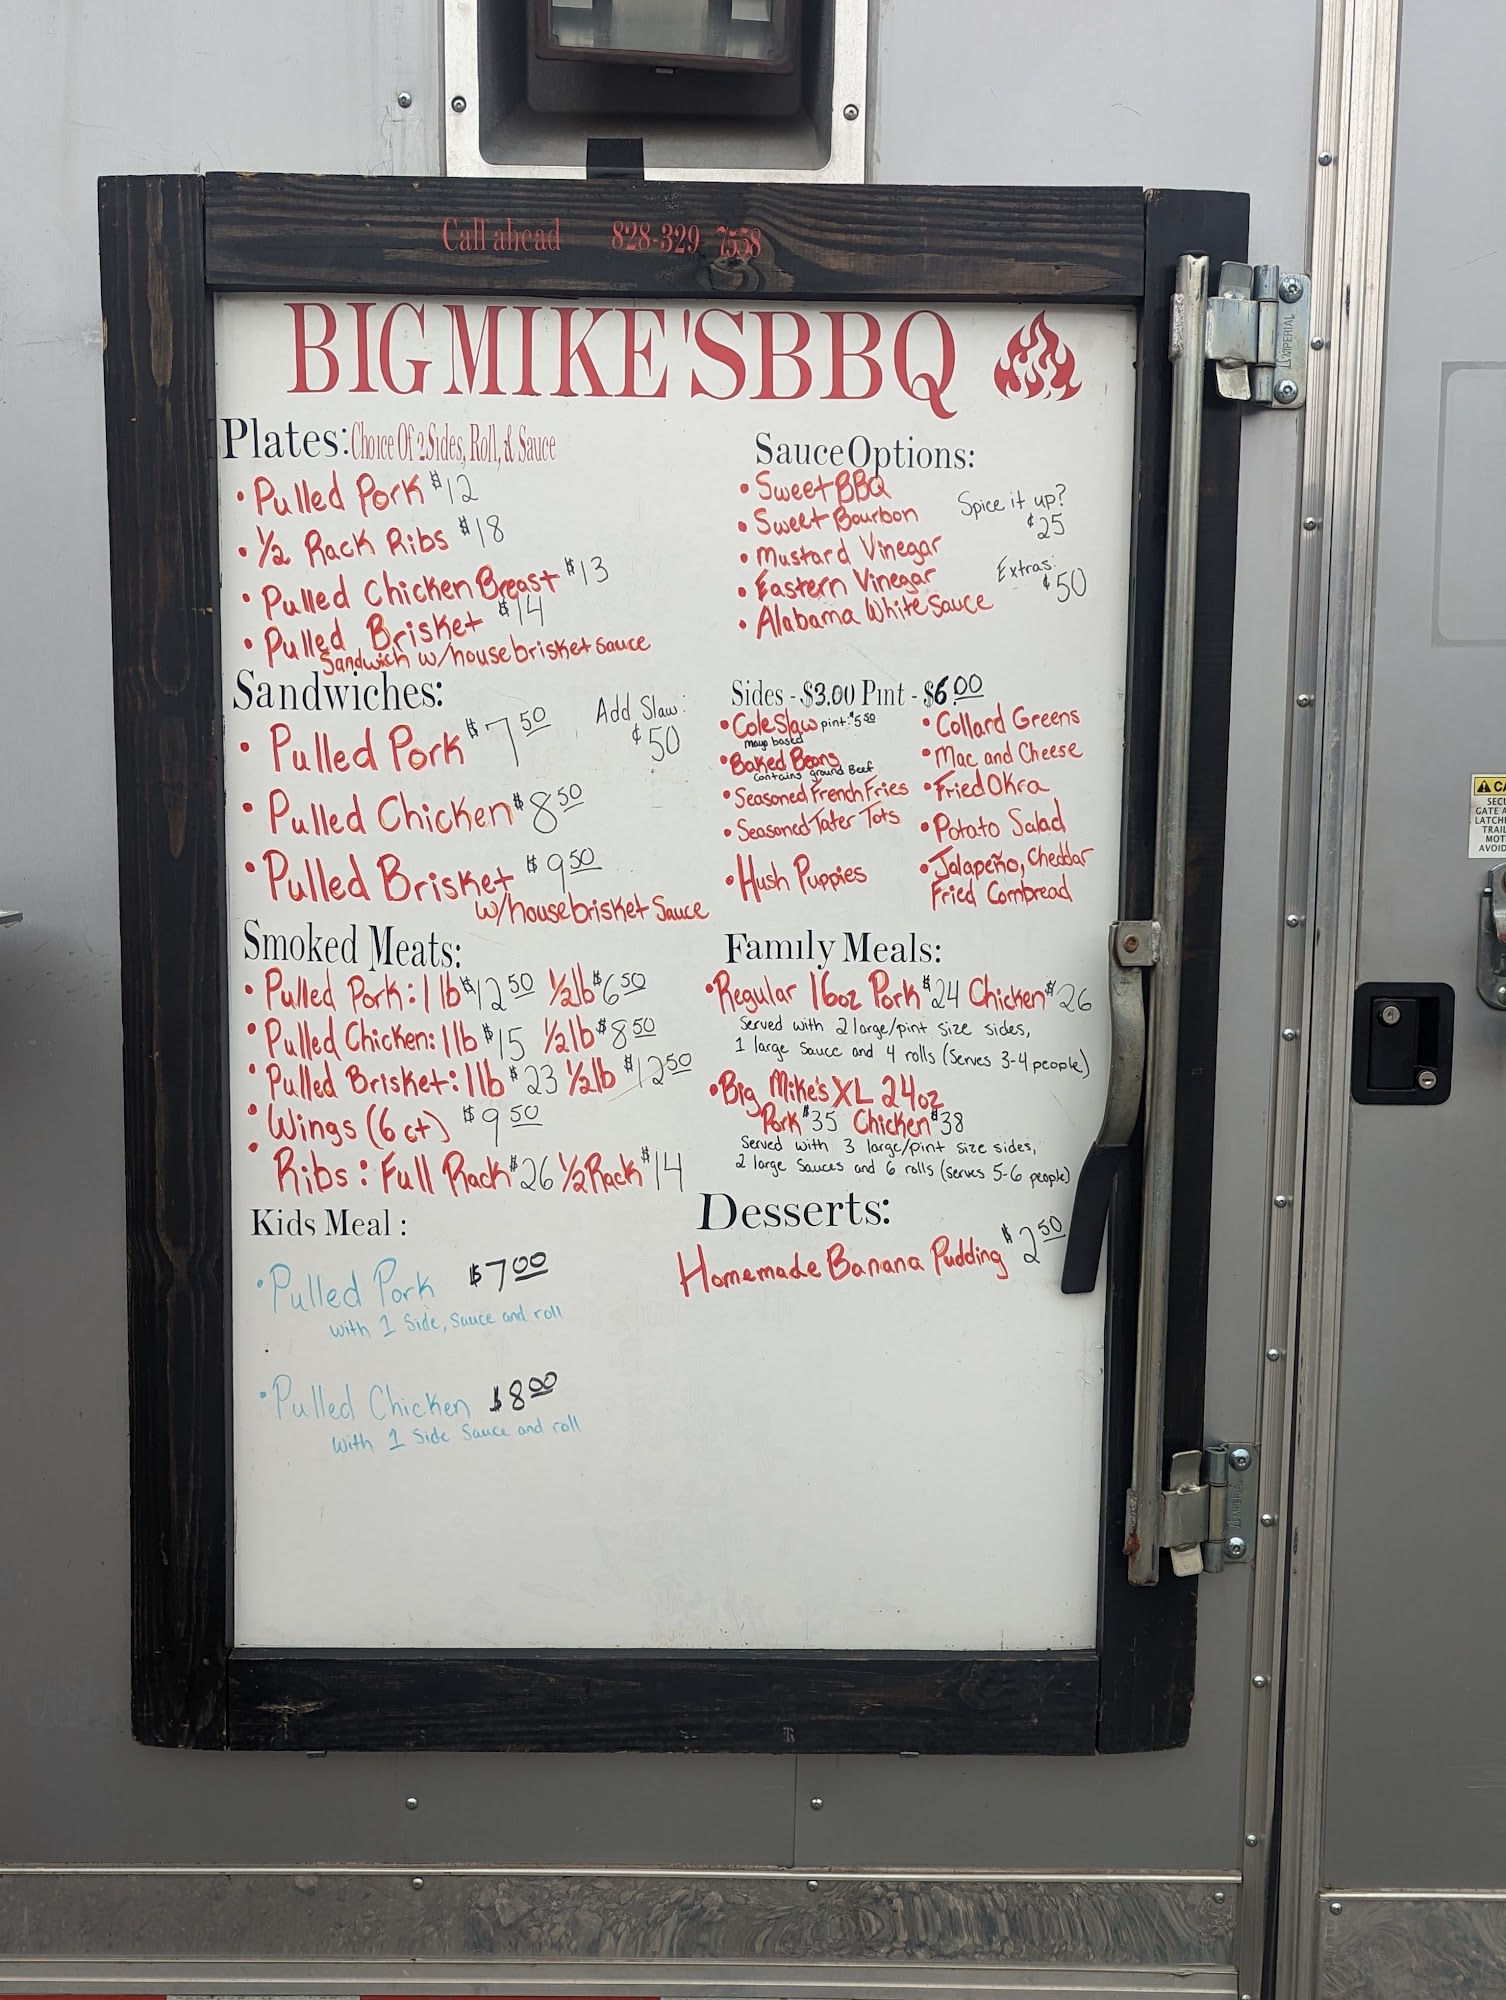 Call ahead 828-329-7558
BIG MIKE'S BBQ
Plates: Choice Of 2 Sides, Roll, & Sauce
• Pulled Pork $12
• 1/2 Rack Ribs $18
• Pulled Chicken Breast $13
• Pulled Brisket $14
Sandwich w/house brisket sauce
Sandwiches:
Add Slaw:
¢50
• Pulled Pork $7.50
• Pulled Chicken $8.50
• Pulled Brisket $9.50
w/house brisket Sauce
Smoked Meats:
• Pulled Pork: 1 lb $12.50 1/2 lb $6.50
• Pulled Chicken: 1 lb $15 1/2 lb $8.50
• Pulled Brisket: 1 lb $23 1/2 lb $12.50
• Wings (6 ct) $9.50
• Ribs: Full Rack $26 1/2 Rack $14
Kids Meal:
• Pulled Pork $7.00
with 1 Side, Sauce and roll
• Pulled Chicken $8.00
with 1 Side Sauce and roll
Sauce Options:
• Sweet BBQ
• Sweet Bourbon
• Mustard Vinegar
• Eastern Vinegar
• Alabama White Sauce
Spice it up?
¢25
Extras:
¢50
Sides - $3.00 Pint - $6.00
• Cole Slaw pint: $5.50
mayo based
• Baked Beans
contains ground Beef
• Seasoned French Fries
• Seasoned Tater Tots
• Hush Puppies
• Collard Greens
• Mac and Cheese
• Fried Okra
• Potato Salad
• Jalapeño, Cheddar
Fried Cornbread
Family Meals:
• Regular 16oz Pork $24 Chicken $26
Served with 2 large/pint size sides,
1 large Sauce and 4 rolls (Serves 3-4 people)
• Big Mike's XL 24oz
Pork $35 Chicken $38
Served with 3 large/pint size sides,
2 large Sauces and 6 rolls (serves 5-6 people)
Desserts:
Homemade Banana Pudding $2.50
IMPERIAL